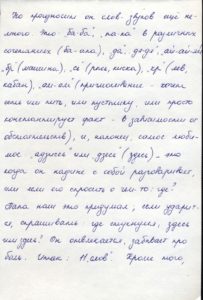 Но произносит он слов-звуков ещё не-
много. Это "ба-ба", "па-па" в различных
сочетаниях (ба-апа), "да", "ай-ай-ай",
(машина), (рысь, киска), (лев,
кабан), "ам-ам" (причмокивание - хочет
есть или пить, или пустышку, или просто
констатирует факт - в зависимости от
обстоятельств), и, наконец, самое люби-
мое или "здесь" (здесь) - это
когда он наедине с собой разговаривает,
или если его спросить о чём-то: где?
Папа наш это придумал, если ударит-
ся, спрашивать: где стукнулся, здесь
или здесь? Он отвлекается, забывает про
боль. Кроме того,